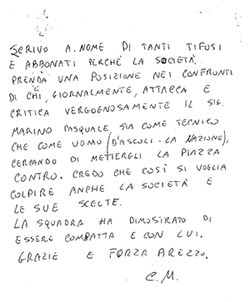 SCRIVO A NOME DI TANTI TIFOSI
E ABBONATI PERCHÈ LA SOCIETÀ
PRENDA UNA POSIZIONE NEI CONFRONTI
DI CHI, GIORNALMENTE, ATTACCA E
CRITICA VERGOGNOSAMENTE IL SIG.
MARINO PASQUALE, SIA COME TECNICO
CHE COME UOMO (D'ASCOLI - LA NAZIONE),
CERCANDO DI METTERGLI LA PIAZZA
CONTRO. CREDO CHE COSÌ SI VOGLIA
COLPIRE ANCHE LA SOCIETÀ E
LE SUE SCELTE.
LA SQUADRA HA DIMOSTRATO DI
ESSERE COMPATTA E CON LUI.
GRAZIE E FORZA AREZZO.
C.M.